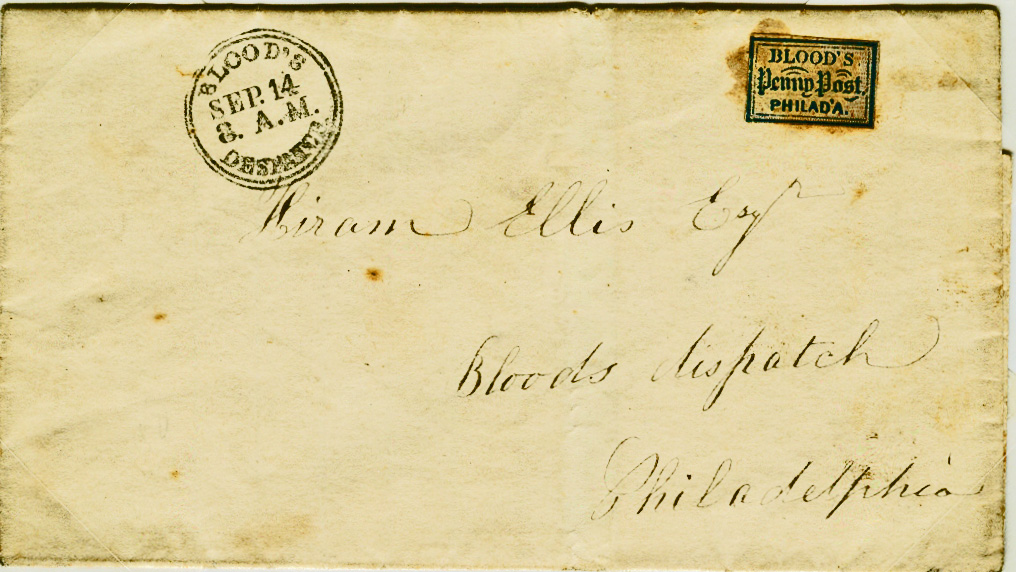 BLOOD'S
SEP. 14
8. A.M.
DESPATCH
BLOOD'S
Penny Post,
PHILAD'A.
Hiram Ellis Esqr
Bloods dispatch
Philadelphia